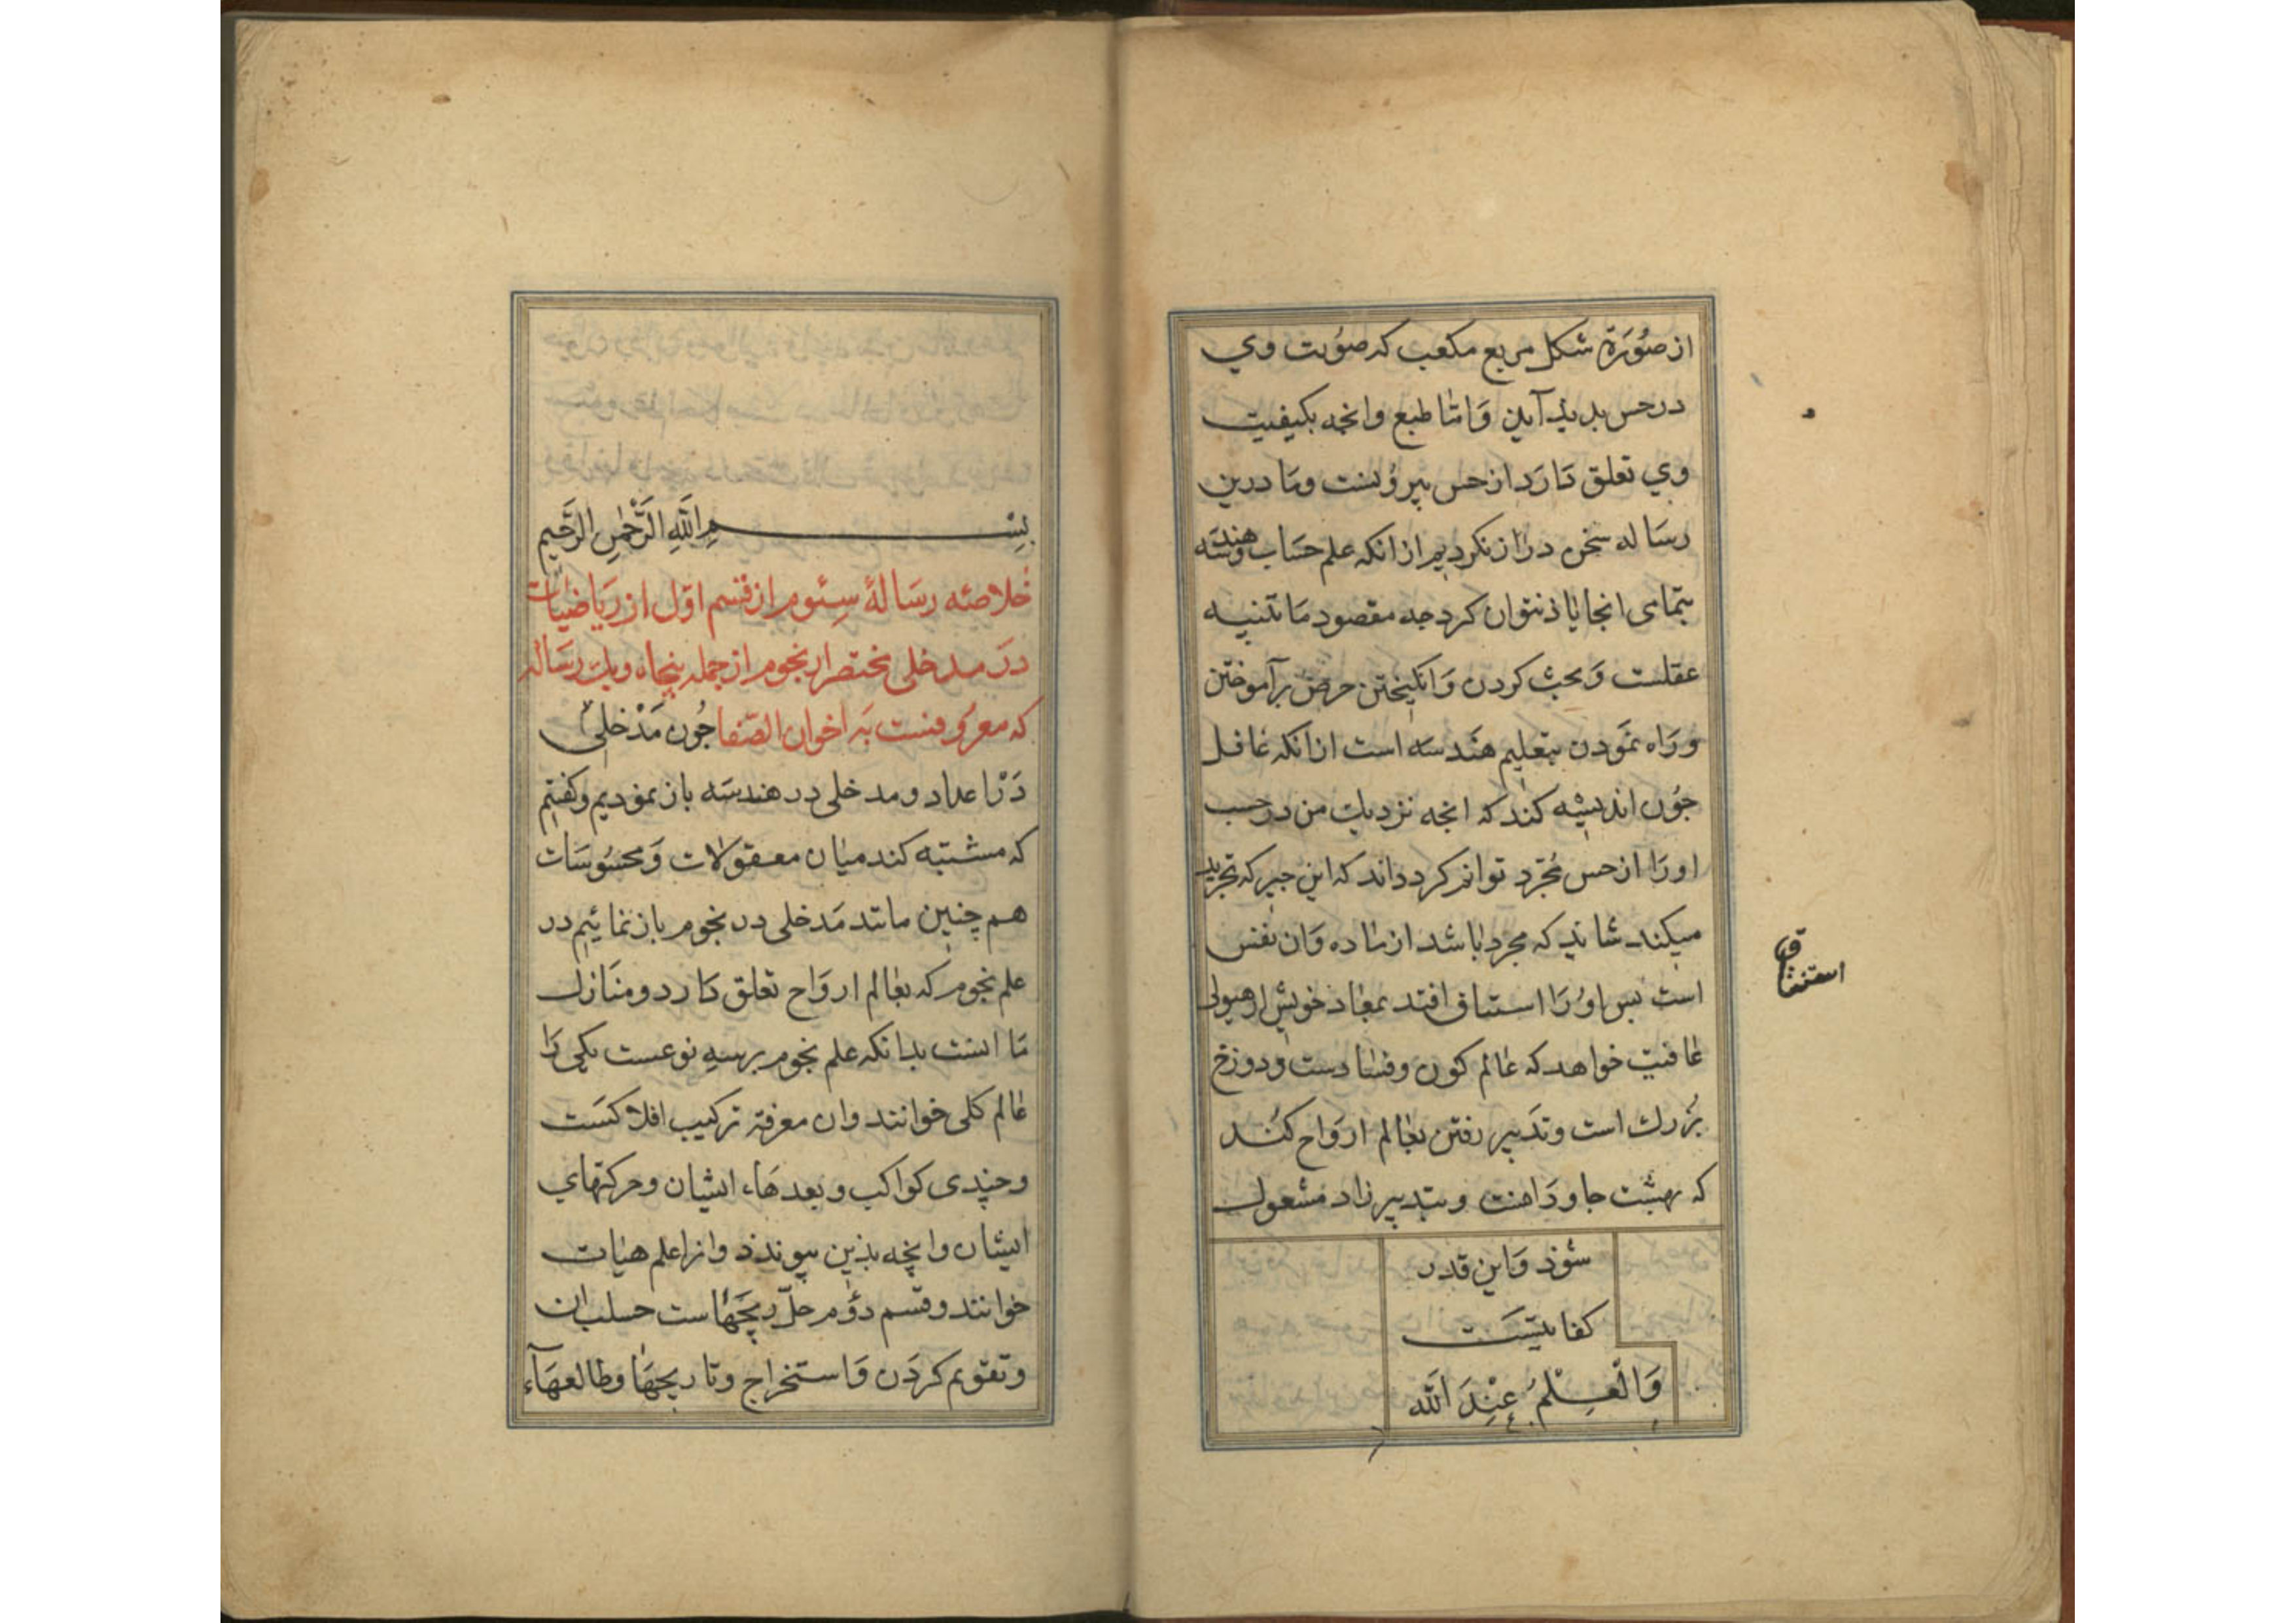 از صُوَرة شکل مربع مکعب که صوُرت وي
در حس بدیذ آید وَامّا طبع وانجه بکیفیت
وي تعلق دَارَد از حس بیرُونست ومَا درین
رسَاله سخن دراز نکردیم ازانکه علم حسَاب وهندسَه
بتمامی انجا یاذ نتوان کرد جه مقصود مَا تنبیه
عقلست وَبحث کردن وَانکیختن حرص برآموختن
ورَاه نمَودن بتعلیم هَندسَه است ازانکه غافل
جوُن اندیشه کند که انجه نزدیك من در حسب
اورَا از حس مُجَرد توانم کرد داند که این جیز که تجرید
میکند شاید که مجرد باشد از ماده وَان نفس
است بس اوُرَا استیاق افتد بمعاد خویش از هیولی
عافیت خواهد که عالم کون وفساد ست ودوزخ
بُزرك است وتَدبیر رفتن بعالم اروَاح کُند
که بهشت جاودَانست وبتدبیر زاد مشعول
شوُذ وَاین قدر
کفایتَست
وَالْعِلْمُ عِنْدَ اَللّه
ق
استنشا
بِسْمِ اللَّهِ الرَّحْمٰنِ الرَّحَیم
خلاصهٔ رسَالهٔ سِئوم از قسم اوّل از ریَاضیّات
دَر مدخلی مختصر از نجوم از جمله پنجاه ویك رسَاله
که معرُوفست بَه اخوان الصّفا جُون مَدْخلی
دَرْ اعداد ومدخلی در هندسَه باز نمودیم وکفتیم
که مشتبه کند میَان معقولات وَمحسُوسَات
هم چنین مانند مَدخلی در نجوم باز نمائیم در
علم نجوم که بعالم اروَاح تعلق دَارد ومنَازل
مَا انست بدانکه علم نجوم برسهِ نوعست یکی رَا
عالم کلی خوانند وان معرفة ترکیب افلاکسَت
وجندی کواکب وبعدهَاء ایشان وحرکتهاي
ایشان وانچه بذین پیوندذ وانرا علم هیات
خوانند وقسم دؤم حلّ زیجَهَاست حساب ان
وتقویم کردَن وَاستخراج وتاریجهَا وطالعهَآء